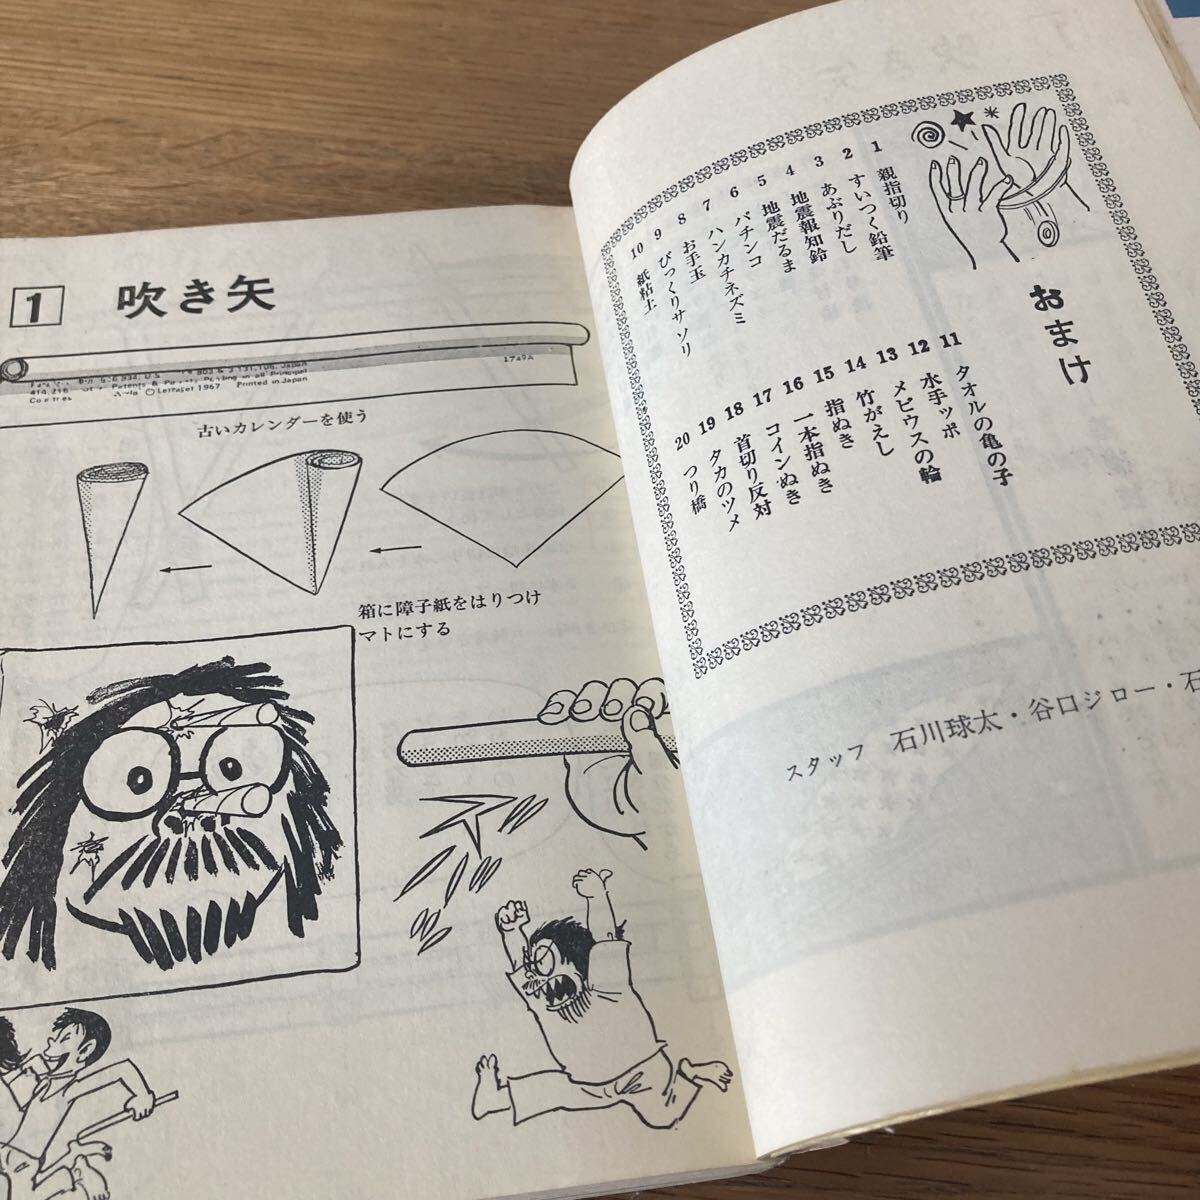 おまけ
1 親指切り
2 すいつく鉛筆
3 あぶりだし
4 地震報知鈴
5 地震だるま
6 パチンコ
7 ハンカチネズミ
8 お手玉
9 びっくりサソリ
10 紙粘土
11 タオルの亀の子
12 水手ッポ
13 メビウスの輪
14 竹がえし
15 指ぬき
16 一本指ぬき
17 コインぬき
18 首切り反対
19 タカのツメ
20 つり橋
スタッフ 石川球太・谷口ジロー・石
1 吹き矢
1749A
Printed in Japan
© Letraset 1967
古いカレンダーを使う
箱に障子紙をはりつけ
マトにする